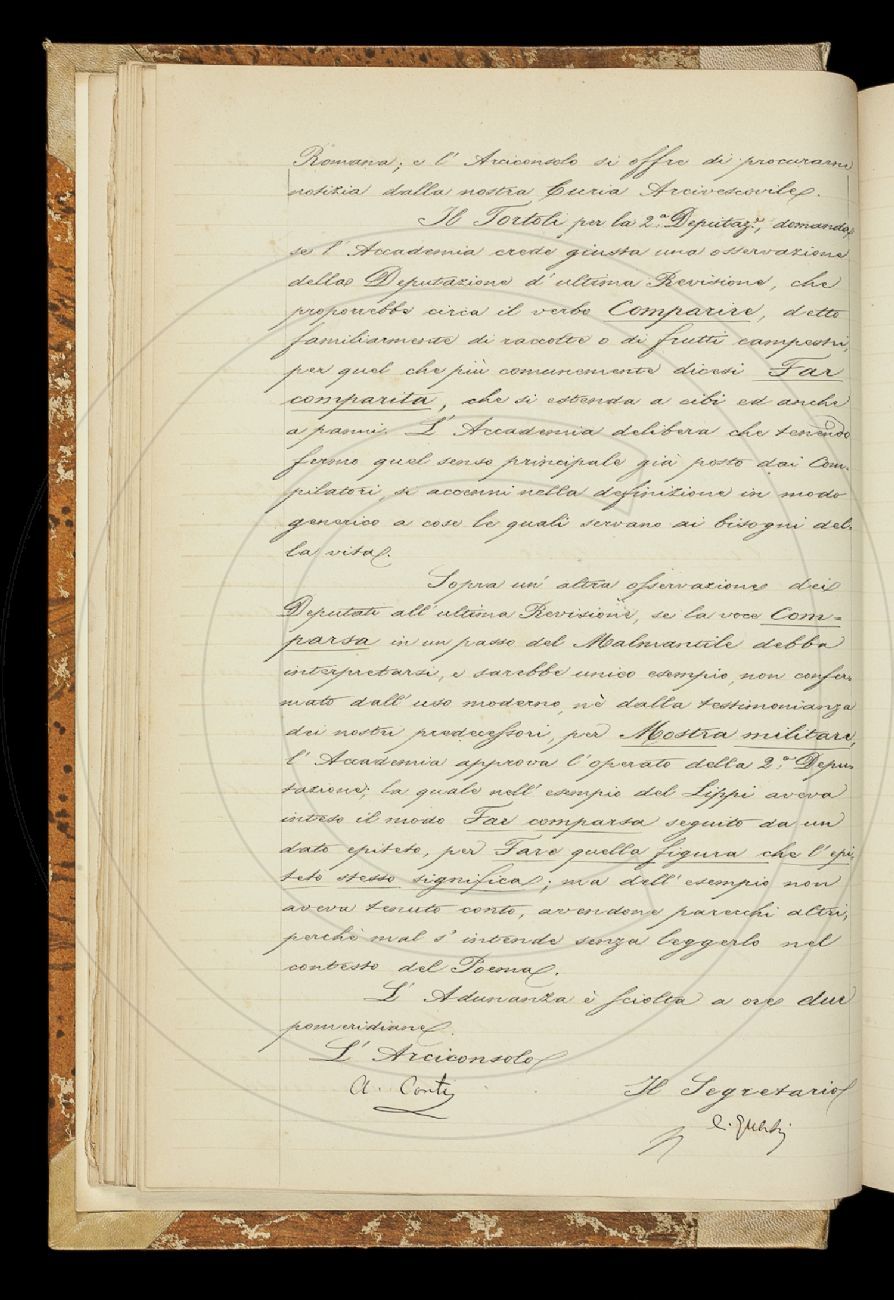 Romana; e l' Arciconsolo si offre di procurarne
notizia dalla nostra Curia Arcivescovile.
Il Tortoli per la 2.ª Deputaz.e, domanda
se l' Accademia crede giusta una osservazione
della Deputazione d' ultima Revisione, che
proporrebbe circa il verbo Comparire, detto
familiarmente di raccolte o di frutti campestri,
per quel che più comunemente dicesi Far
comparita, che si estenda a cibi ed anche
a panni. L' Accademia delibera che tenendo
fermo quel senso principale già posto dai Com-
pilatori, si accenni nella definizione in modo
generico a cose le quali servano ai bisogni del-
la vita.
Sopra un' altra osservazione dei
Deputati all' ultima Revisione, se la voce Com=
parsa in un passo del Malmantile debba
interpretarsi, e sarebbe unico esempio, non confer-
mato dall' uso moderno, nè dalla testimonianza
dei nostri predecessori, per Mostra militare,
l' Accademia approva l' operato della 2.ª Depu-
tazione; la quale nell' esempio del Lippi aveva
inteso il modo Far comparsa seguito da un
dato epiteto, per Fare quella figura che l' epi-
teto stesso significa; ma dell' esempio non
aveva tenuto conto, avendone parecchi altri,
perchè mal s' intende senza leggerlo nel
contesto del Poema.
L' Adunanza è sciolta a ore due
pomeridiane.
L' Arciconsolo
A. Conti
Il Segretario